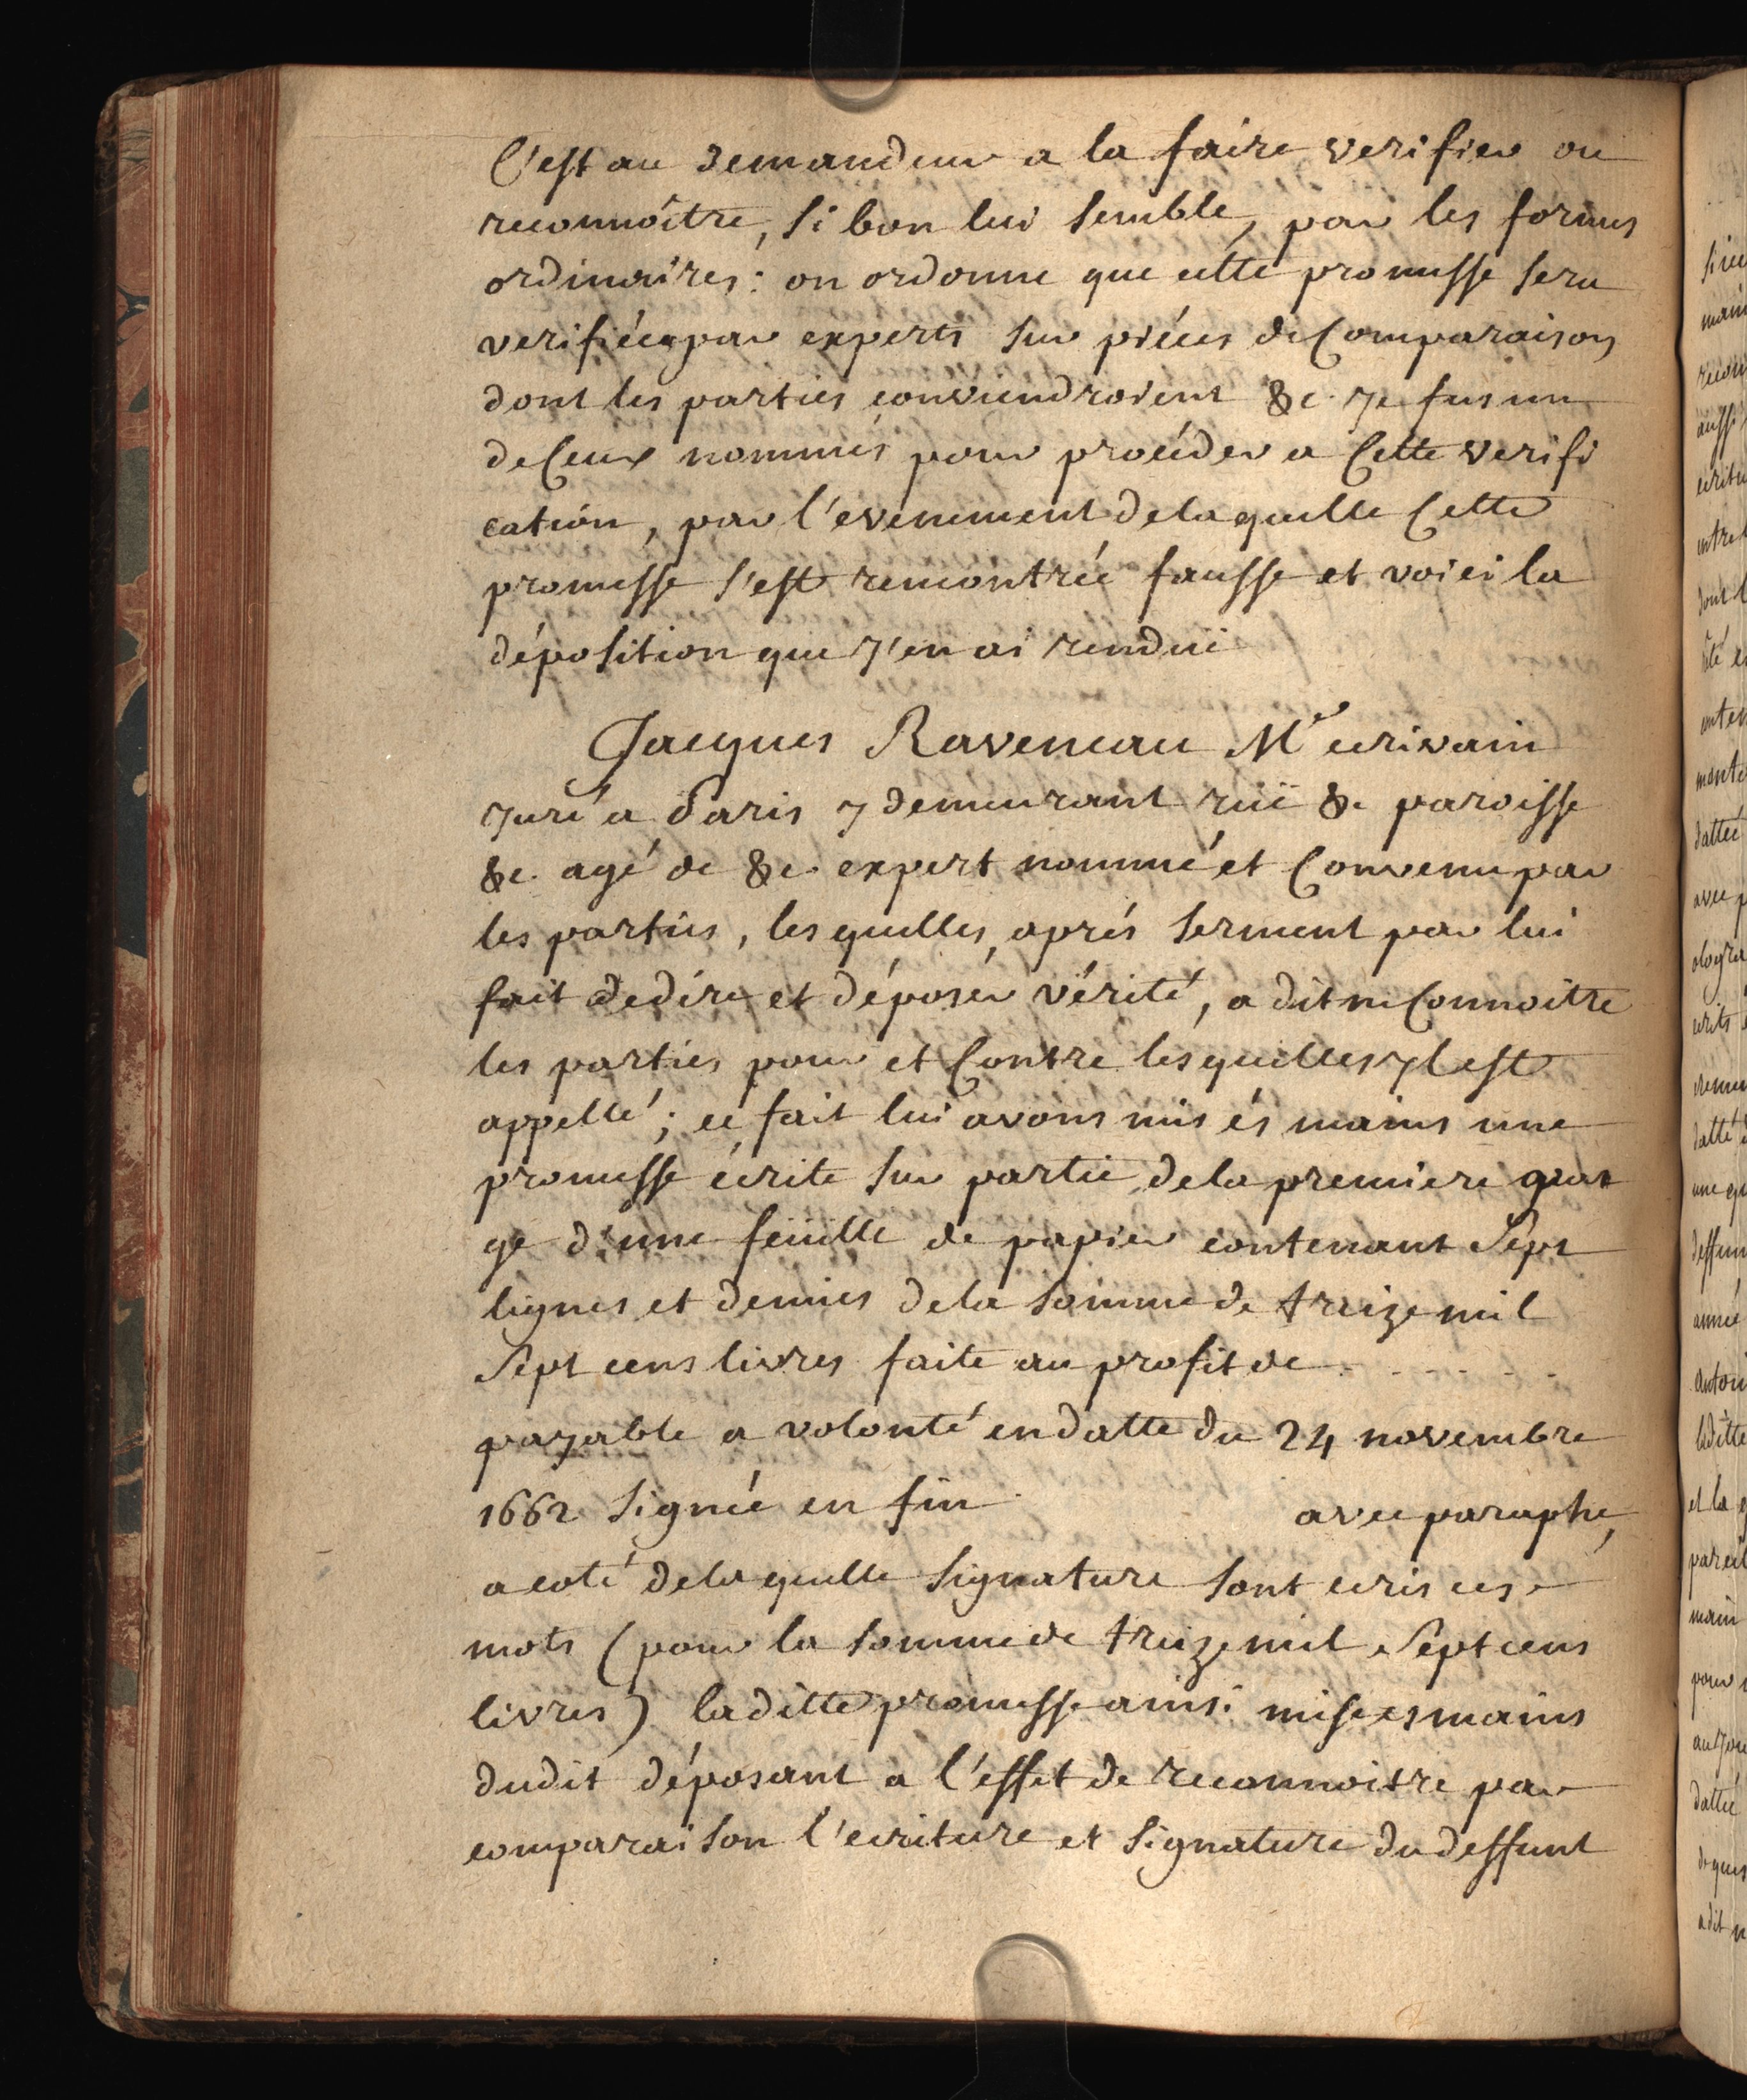 C'est au demandeur a la faire verifier ou
reconnoître, si bon lui semble, par les formes
ordinaires: on ordonne que cette promesse sera
verifiée par experts sur piéces de Comparaison
dont les parties conviendroient &c. je fus un
de Ceux nommés pour procéder a Cette verifi
cation, par l'evenement de laquelle Cette
promesse s'est rencontrée fausse et voici la
déposition que j'en ai renduë
Jacques Raveneau Mr ecrivain
juré a Paris y demeurant ruë &c paroisse
&c. agé de &c. expert nommé et Convenu par
les parties, lesquelles, aprés serment par lui
fait de dire et déposer vérité, a dit ne Connoitre
les parties pour et Contre lesquelles yl est
appellé; ce fait lui avons mis és mains une
promesse écrite sur partie de la premiere pa
ge d'une feüille de papier contenant Sept
lignes et demies de la somme de treize mil
Sept cens livres faite au profit de . - - - - -
payable a volonté en datte du 24 novembre
1662 signée en fin avec paraphe,
a coté de laquelle signature sont ecris ces
mots (pour la somme de treize mil Sept cens
livres) laditte promesse ainsi mise es mains
dudit déposant a l'effet de reconnoistre par
comparaison l'ecriture et signature du deffunt